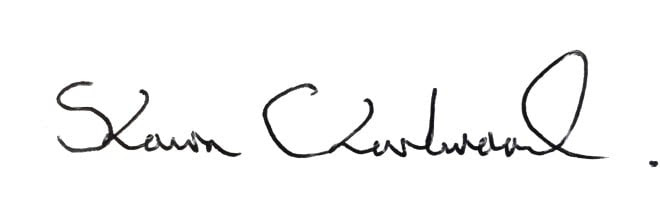 Shaun Charlwood.